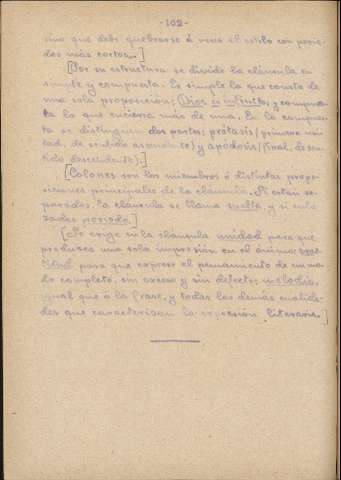 -102-
sino que debe quebrarse á veces el estilo con perío-
dos más cortos.]
[Por su estructura se divide la cláusula en
simple y compuesta. Es simple la que consta de
una sola proposición; (Dios es infinito) y compues-
ta la que encierra más de una. En la compues-
ta se distinguen dos partes: prótasis (primera mi-
tad, de sentido ascendente) y apódosis (final, de sen-
tido descendente).]
[Colones son los miembros ó distintas propo-
siciones principales de la cláusula. Si están se-
parados, la cláusula se llama suelta y si enla-
zadas período.]
[Se exige en la cláusula unidad para que
produzca una sola impresión en el ánimo,
para que exprese el pensamiento de un mo-
do completo, sin exceso y sin defecto; melodía,
igual que á la frase, y todas las demás cualida-
des que caracterizan la expresión literaria.]